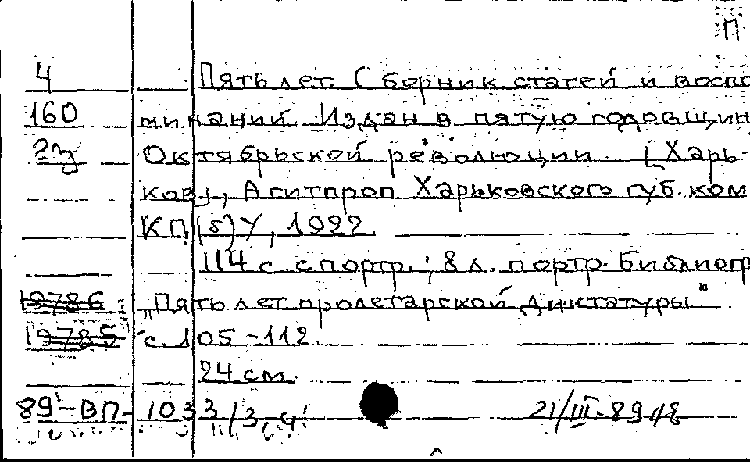 П
4 Пять лет. Сборник статей и воспо
160 минаний. Издан в пятую годовщин
Октябрьской революции. [Харь-
ков], Агитпроп Харьковского губ. ком
КП(б)У, 1922
114 с. с портр.; 8 л. портр. Библиогр
19786 "Пять лет пролетарской диктатуры"
19785 с. 105-112.
24 см.
89-ВП-1033/3,4